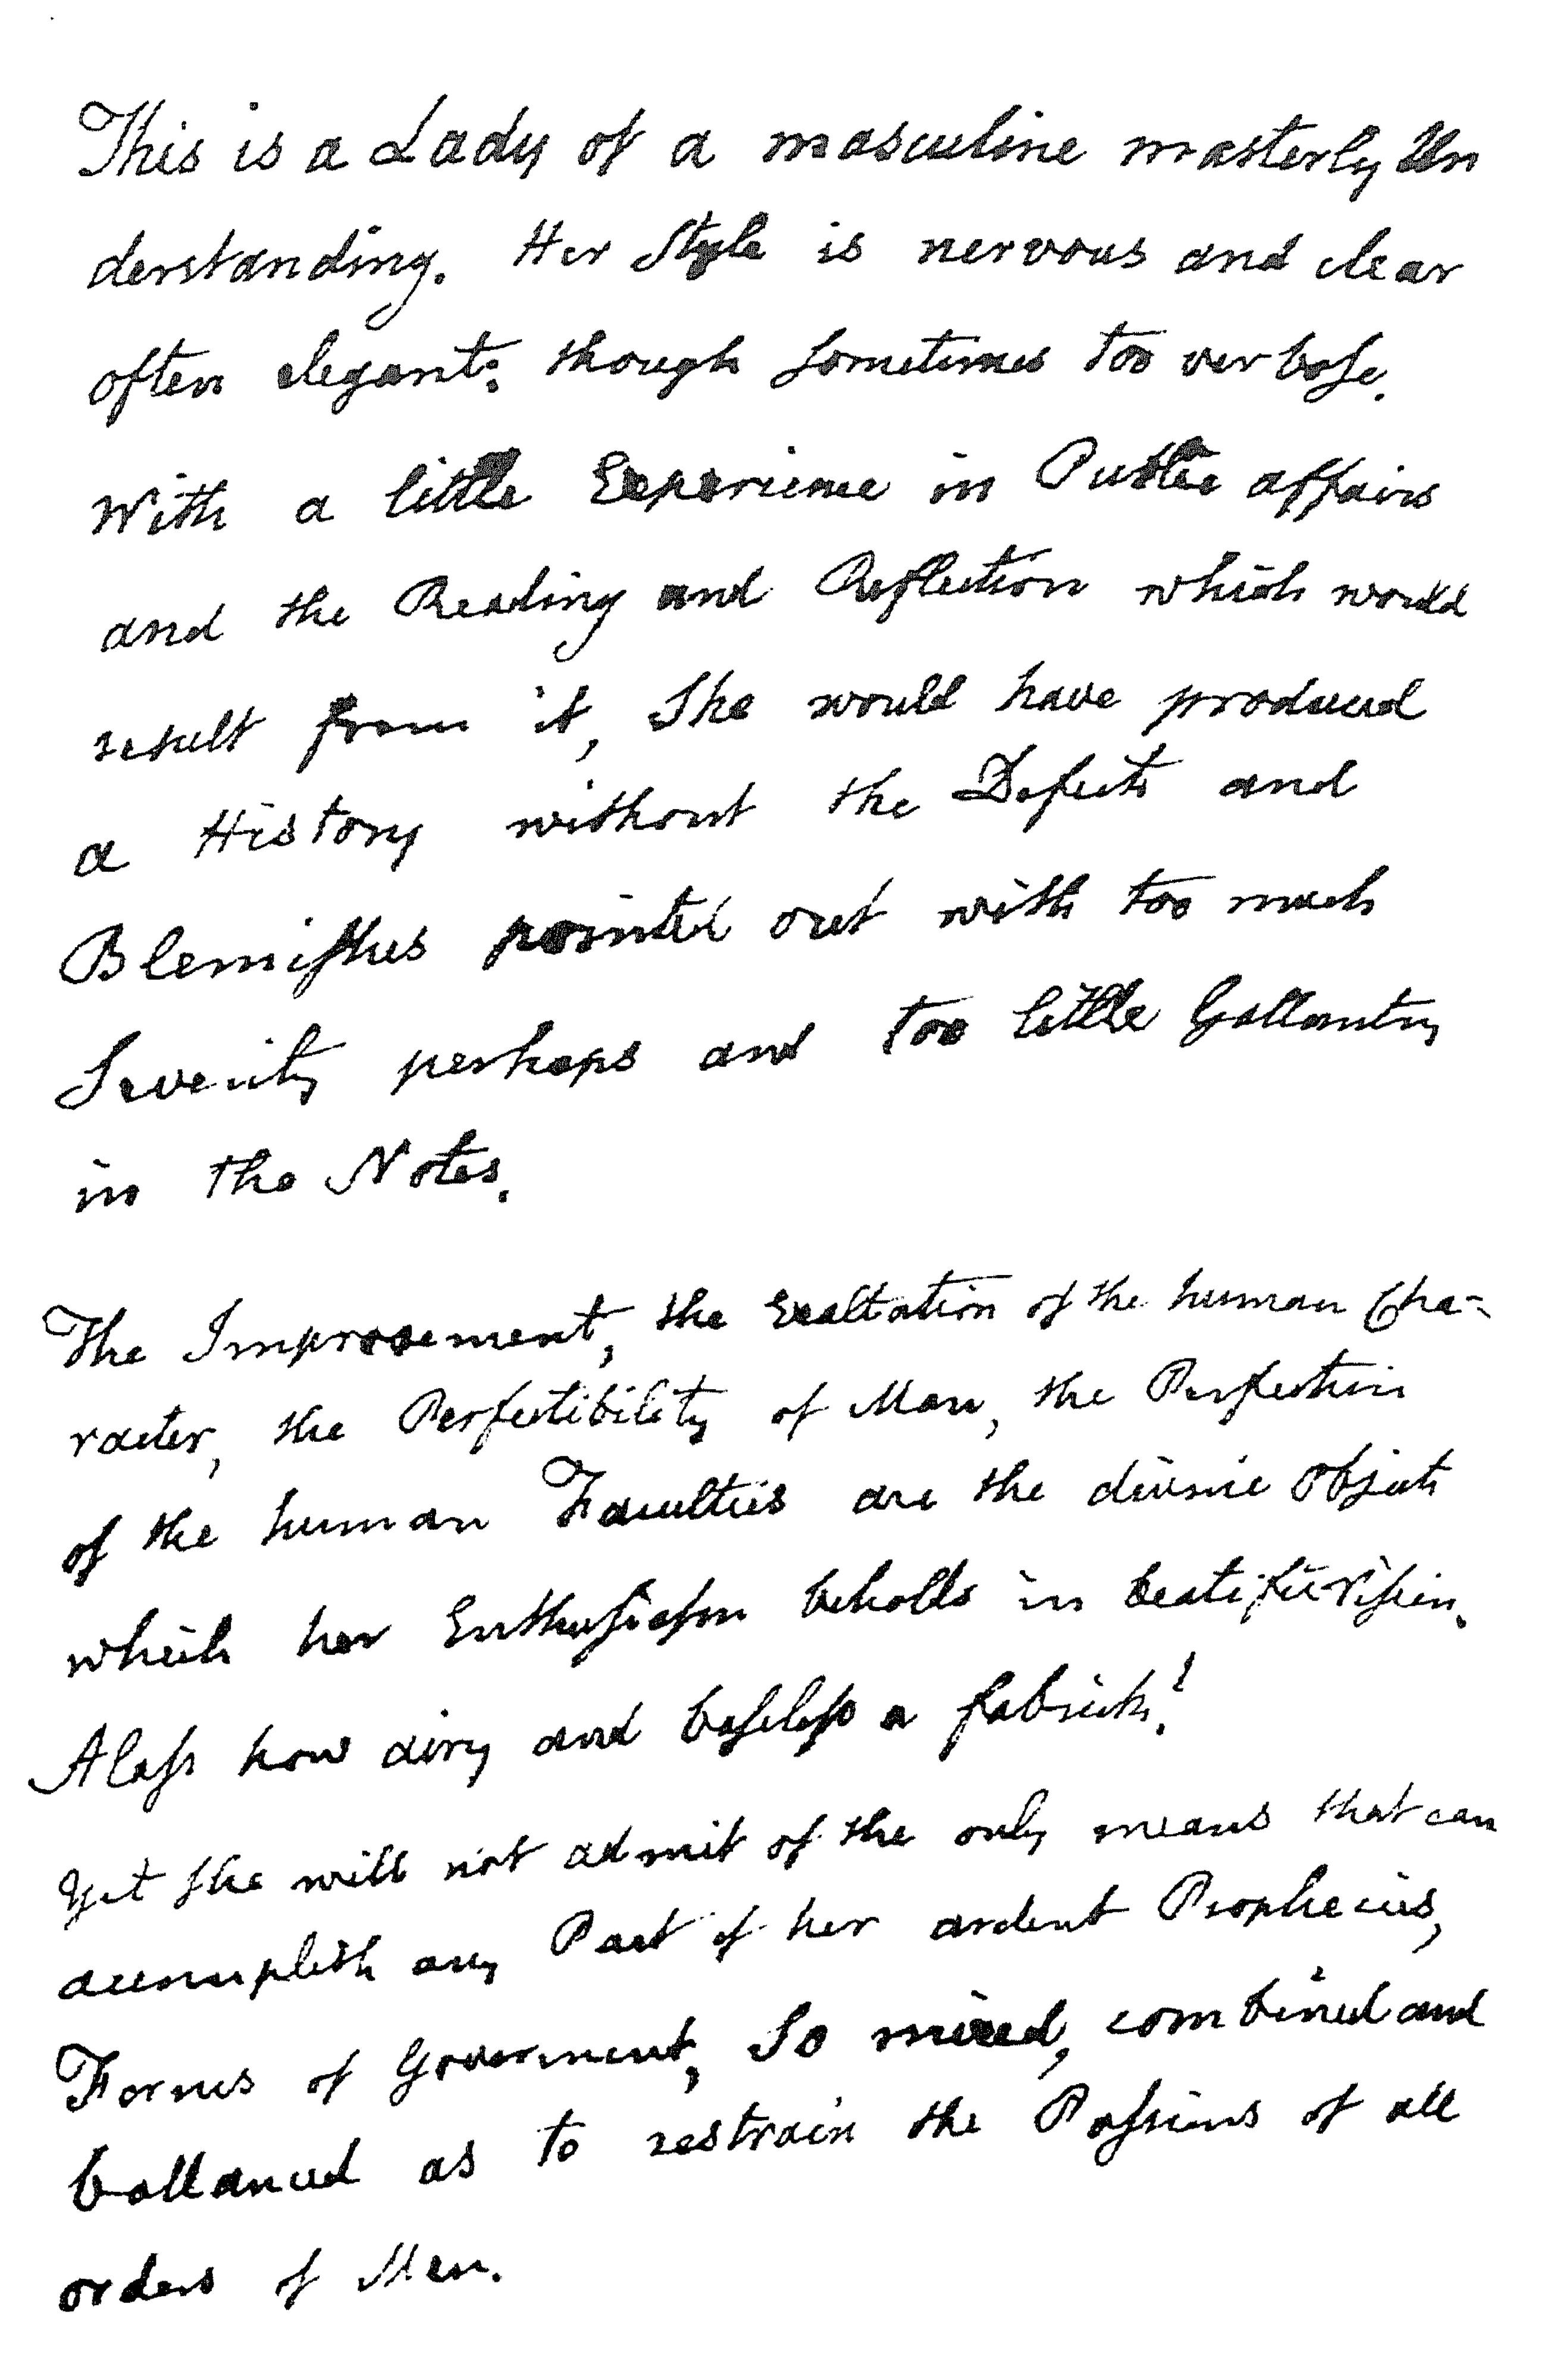 This is a Lady of a masculine masterly Un
derstanding. Her Style is nervous and clear
often elegant: though sometimes too verbose.
With a little Experience in Public affairs
and the Reading and Reflection which would
result from it, She would have produced
a History without the Defects and
Blemishes pointed out with too much
Severity perhaps and too little Gallantry
in the Notes.
The Improvement, the Exaltation of the human Cha-
racter, the Perfectibility of Man, the Perfection
of the human Faculties are the divine Objects
which her Enthusiasm beholds in beatific Vision.
Alass how airy and baseless a fabrick!
Yet she will not admit of the only means that can
accomplish any Part of her ardent Prophecies,
Forms of Goverment, So mixed, combined and
ballanced as to restrain the Passions of all
orders of Men.